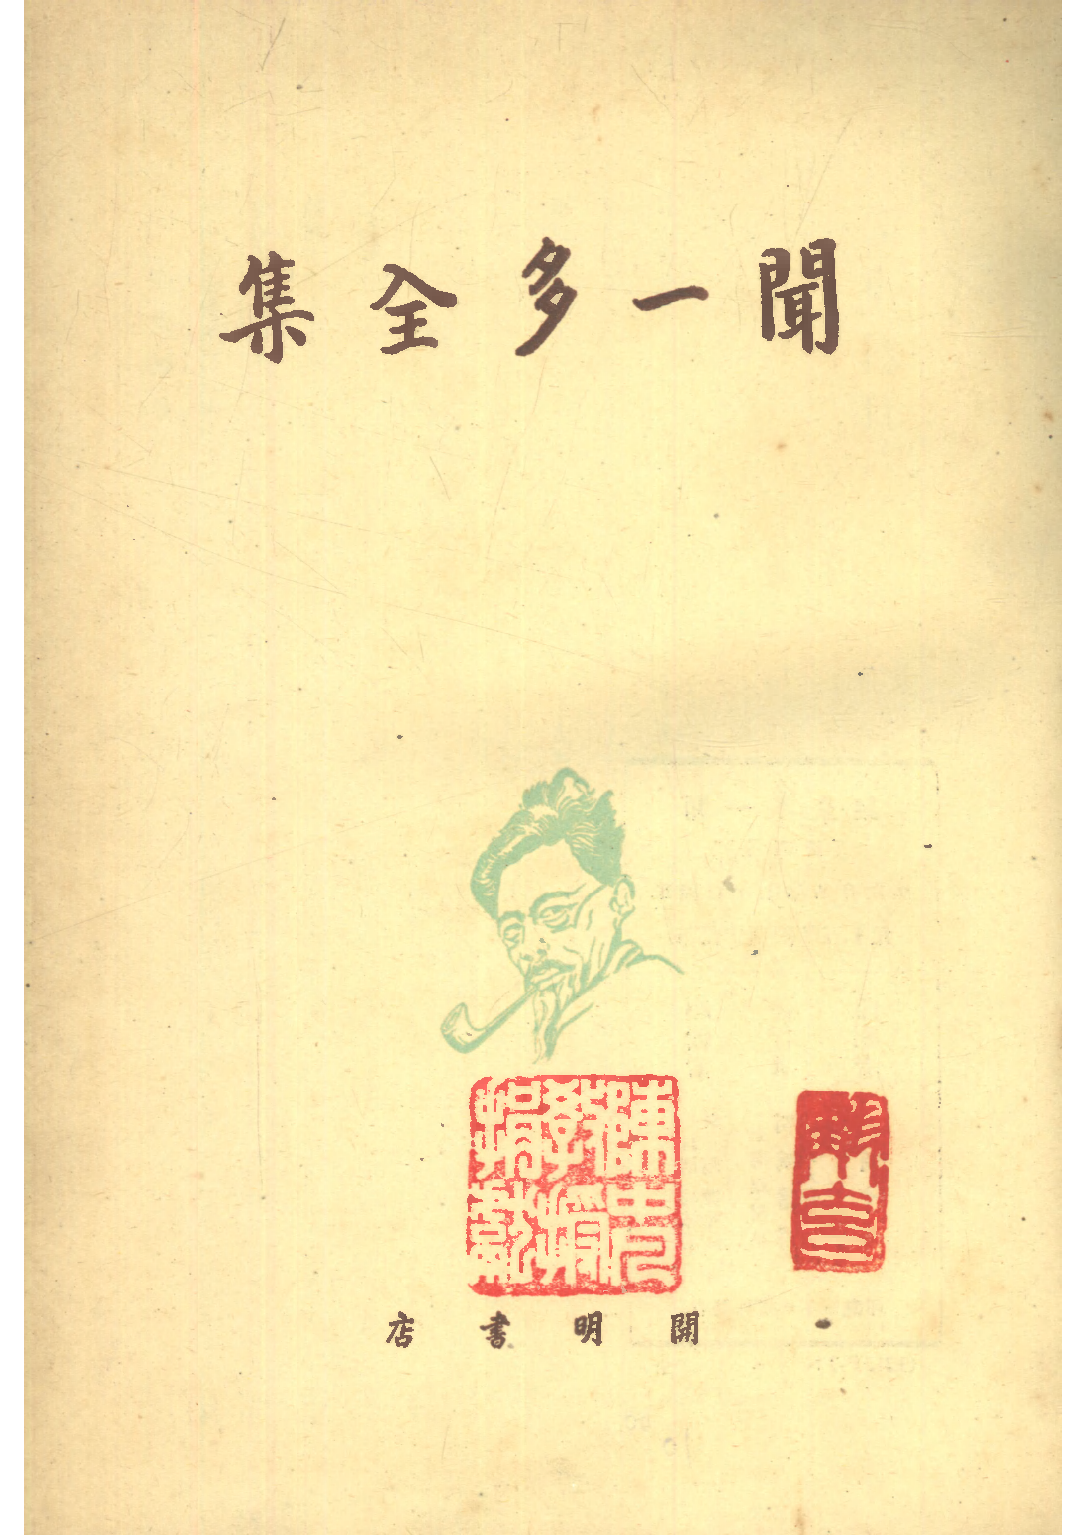 聞一多全集
開明書店